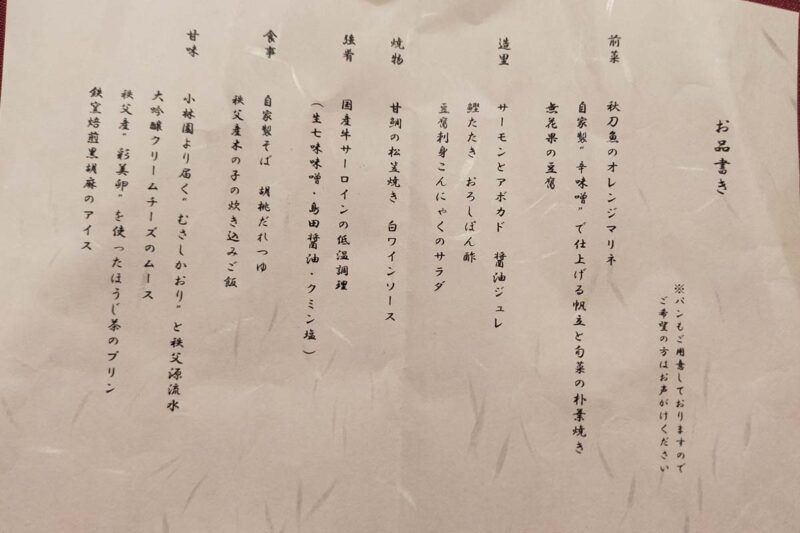 お品書き
※パンもご用意しておりますので
ご希望の方はお声がけください
前菜
秋刀魚のオレンジマリネ
自家製"辛味噌"で仕上げる帆立と旬菜の朴葉焼き
無花果の豆腐
造里
サーモンとアボカド 醤油ジュレ
鰹たたき おろしぽん酢
豆腐刺身こんにゃくのサラダ
焼物
甘鯛の松笠焼き 白ワインソース
強肴
国産牛サーロインの低温調理
(生七味味噌・島田醤油・クミン塩)
食事
自家製そば 胡桃だれつゆ
秩父産木の子の炊き込みご飯
甘味
小林園より届く"むさしかおり"と秩父源流水
大吟醸クリームチーズのムース
秩父産"彩美卵"を使ったほうじ茶のプリン
鉄窯焙煎黒胡麻のアイス